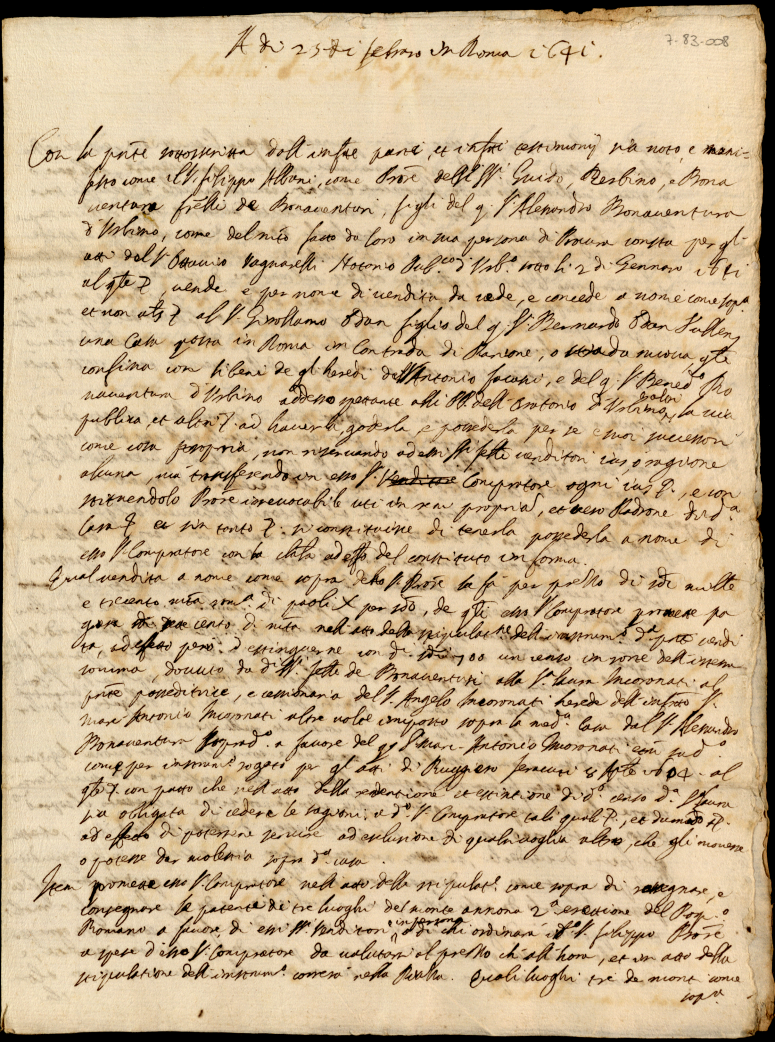 A di 25 di febraro in Roma 1641.
7-83-008
Con la pñte sottoscritta dall' infrẽ parti, et infrĩ testimonij sia noto, e mani=
festo come il S. Filippo Albani, come Prõre delli SS. Guido, Berbino, e Bona
ventura frẽlli de Bonaventuri, figli del q. S. Alessandro Bonaventura
d'Urbino, come del mão fatto da loro in sua persona di Procura consta per gl'
atti del S. Ottavio Vagnarelli Notario Pub.co d'Urb.o sotto li 2 di Gennaro 1641
al q̃le vende e per nome di vendita da cede, e concede a nome come sop.a
et non al S. Girollamo Odan figlio del q. S. Bernardo Odan
una Casa posta in Roma in Contrada di Parione, o strada nuova, q̃le
confina con li beni de gl' heredi dell' Antonio, e del q. S. Bened.o Bo
naventura d'Urbino adesso spettante alli PP. dell' Oratorio d'Urbino, la via
publica, et altri ad haverla, goderla, e possederla per se e suoi successori
come cosa propria, non riservando ad essi SS. frẽlli venditori ius o ragione
alcuna, mà transferendo in esso S. Venditore Compratore ogni ius, e con
stituendolo Prõre irrevocabile uti in rem propria, et vero Padrone di d.a
Casa et sin tanto si constituisse di tenerla possederla a nome di
esso S. Compratore con la clãla ad effo del constituto in forma.
Qual vendita a nome come sopra detto S. Prõre la fa per prezzo di sdi mille
e trecento m̃ta rom.a di paoli X per sdo, de q̃li esso S. Compratore promette pa
gare sdi settecento di m̃ta nell' atto della stipulat.ne dell' instrum.o d.a pñte vendi
ta, ad effetto però d'estinguerne con d.i sdi 700 un censo in sorte dell' istessa
somma, dovuto da d.i SS. frẽlli de Bonaventuri alla S.a Laura Incoronati al
pñte posseditrice, e cessionaria del S. Angelo Incoronati herede dell' infrõ S.
Marc' Antonio Incoronati altre volte imposto sopra la med.a Casa dal S. Alessandro
Bonaventura soprad.o a favore del q. S. Marc-Antonio Incoronati sud.o
come per instrum.o rogato per gl' atti di Ruggiero 1604. al
q̃le con patto che nell' atto della redentione et estintione di d.o censo d.a S. Laura
sia obligata di cedere le ragioni a d.o S. Compratore tali quali, et
ad effetto di potersene servire ad esclusione di qualsivoglia altro, che gli movesse
o potesse dar molestia sopra d.a casa.
Item promette esso S. Compratore nell' atto della stipulat.e come sopra di rassegnare, e
consegnare la patente di tre luoghi del monte annona 2.a erettione del Pop.o
Romano a favor di essi SS. Venditori in persona o di chi ordinarà il S. Filippo Prõre
a spese d'esso S. Compratore da valutarsi al prezzo ch'all' hora, et in atto della
stipulatione dell' instrum.o correrà nella Piazza. Quali luoghi tre de monti come
sop.a